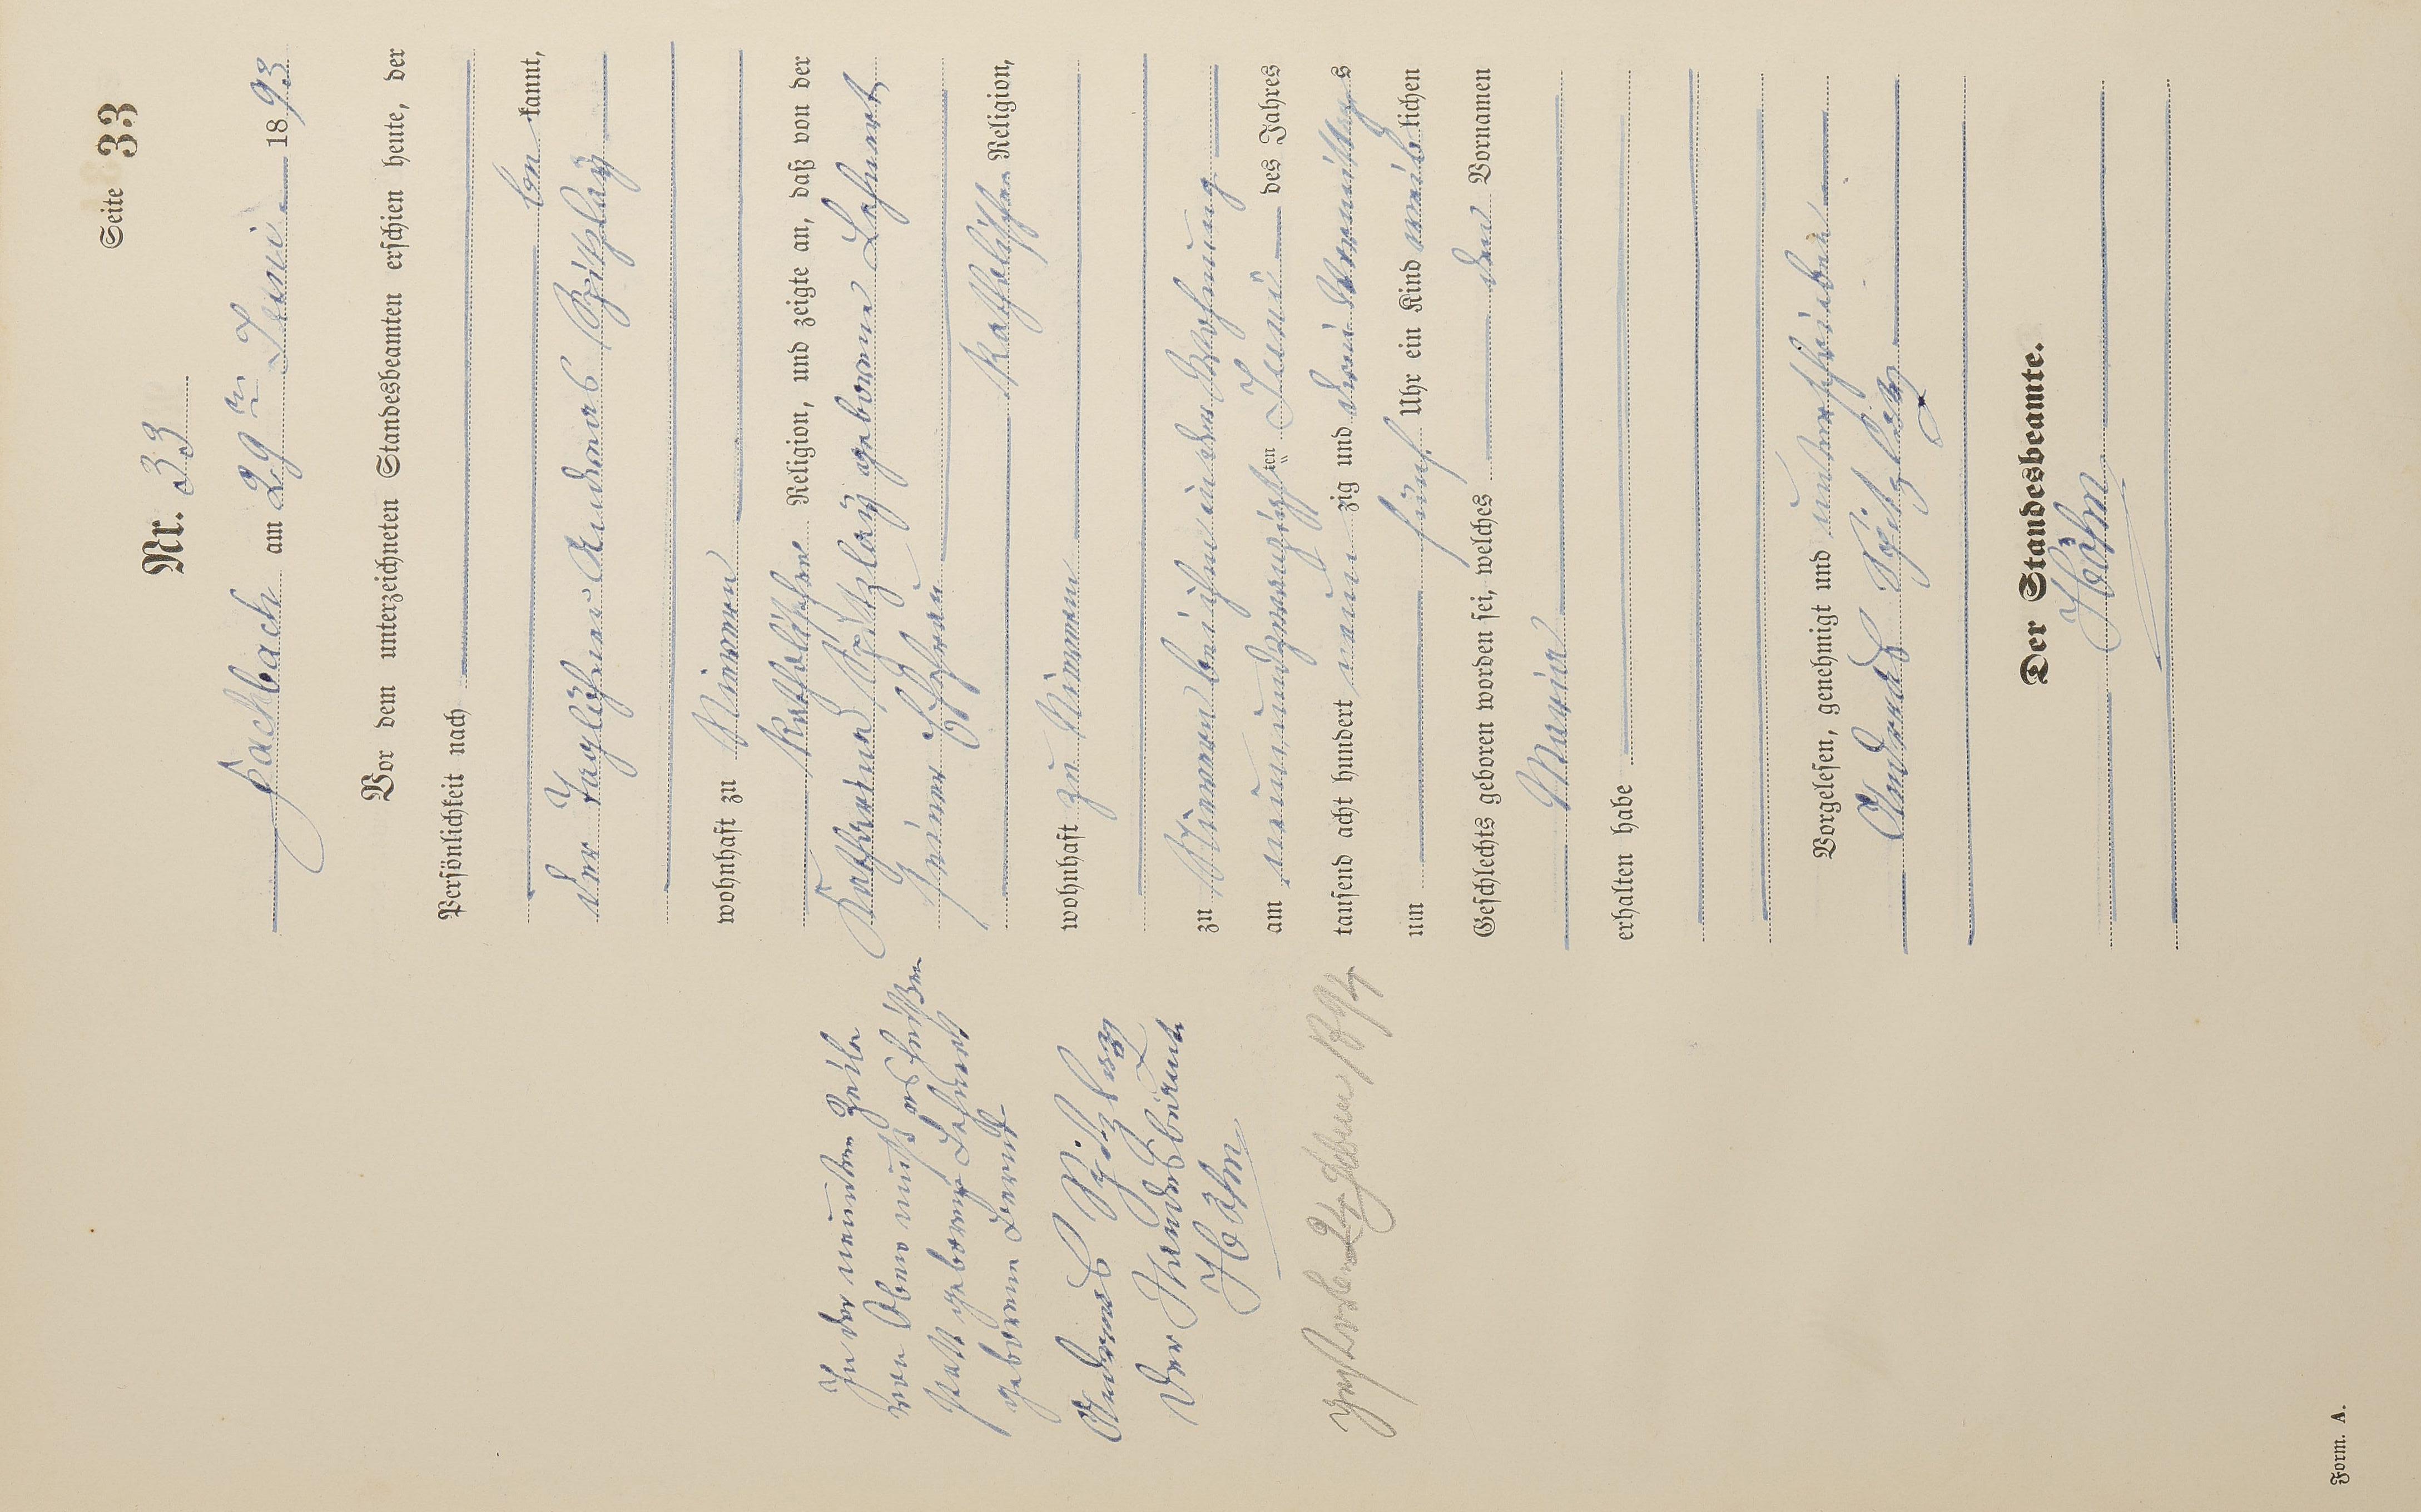 Seite 33
Nr. 33
Fachbach am 29ten Juni 1893
Vor dem unterzeichneten Standesbeamten erschien heute, der
Persönlichkeit nach
be kannt,
der Taglöhner Andreas Spitzlay
wohnhaft zu Nievern
katholischer Religion, und zeigte an, daß von der
Katharina Spitzlay geborene Lehnert
seiner Ehefrau
katholischer Religion,
wohnhaft zu Nievern
zu Nievern bei ihm in der Wohnung
am neunundzwanzigsten Juni des Jahres
tausend acht hundert neunzig und drei Vormittags
um fünf Uhr ein Kind weiblichen
Geschlechts geboren worden sei, welches den Vornamen
Maria
erhalten habe
Vorgelesen, genehmigt und unterschrieben
Andreas Spitzlay
Der Standesbeamte.
Höhn
In der neunten Zeile
von Oben muß es heißen
statt geborene Lehnert
geborene
Andreas Spitzlay
Der Standesbeamte
Höhn
gestorben 24 1894
Form. A.